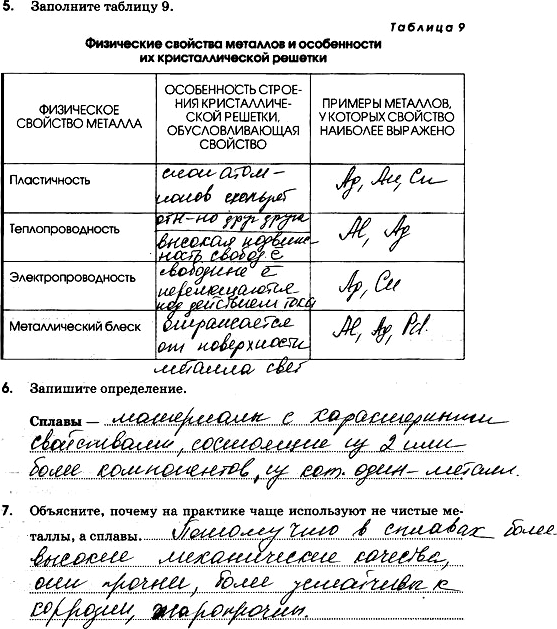 5. Заполните таблицу 9.
Таблица 9
Физические свойства металлов и особенности
их кристаллической решетки
ФИЗИЧЕСКОЕ
СВОЙСТВО МЕТАЛЛА
ОСОБЕННОСТЬ СТРОЕ-
НИЯ КРИСТАЛЛИЧЕ-
СКОЙ РЕШЕТКИ,
ОБУСЛОВЛИВАЮЩАЯ
СВОЙСТВО
ПРИМЕРЫ МЕТАЛЛОВ,
У КОТОРЫХ СВОЙСТВО
НАИБОЛЕЕ ВЫРАЖЕНО
Пластичность
слои атом-
ионов скользят
отн-но друг друга
Ag, Au, Cu
Теплопроводность
высокая подвиж-
ность свобод. ē
Al, Ag
Электропроводность
свободные ē
перемещаются
под действием тока
Ag, Cu
Металлический блеск
отражается
от поверхности
металла свет
Al, Ag, Pd.
6. Запишите определение.
Сплавы — материалы с характерными
свойствами, состоящие из 2 или
более компонентов, из кот. один - металл.
7. Объясните, почему на практике чаще используют не чистые ме-
таллы, а сплавы. Потому что в сплавах более
высокие механические качества,
они прочны, более устойчивы к
коррозии, жаропрочны.